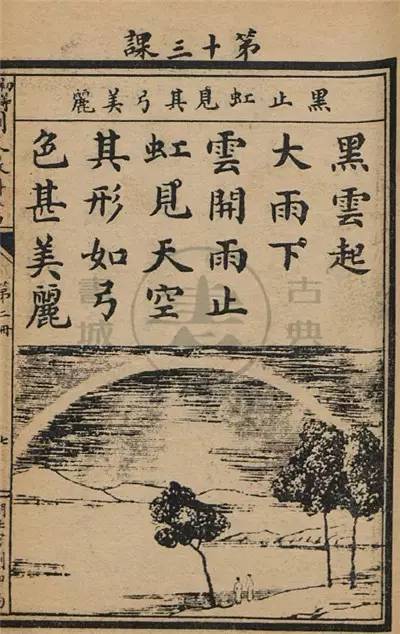 第十三課
黑止虹見其弓美麗
黑雲起
大雨下
雲開雨止
虹見天空
其形如弓
色甚美麗
第二冊
七
古典書城